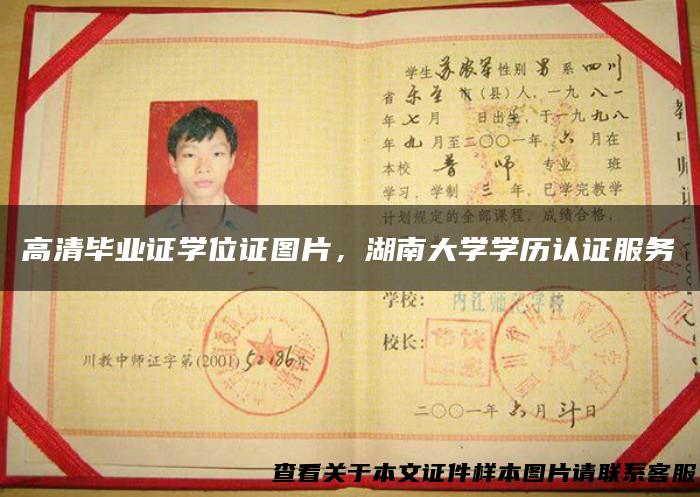 学生 苏农军 性别 男 系 四川
省 乐至 市(县)人,一九 八一
年 七 月 日出生,于一九 九八
年 九 月至二〇〇一年 六 月在
本校 普师 专业 班
学习,学制 三 年,已学完教学
计划规定的全部课程,成绩合格,
高清毕业证学位证图片,湖南大学学历认证服务
学校: 内江师范学校
校长:
川教中师证字第(2001)52186号
二〇〇一年 六 月 卅 日
查看关于本文证件样本图片请联系客服